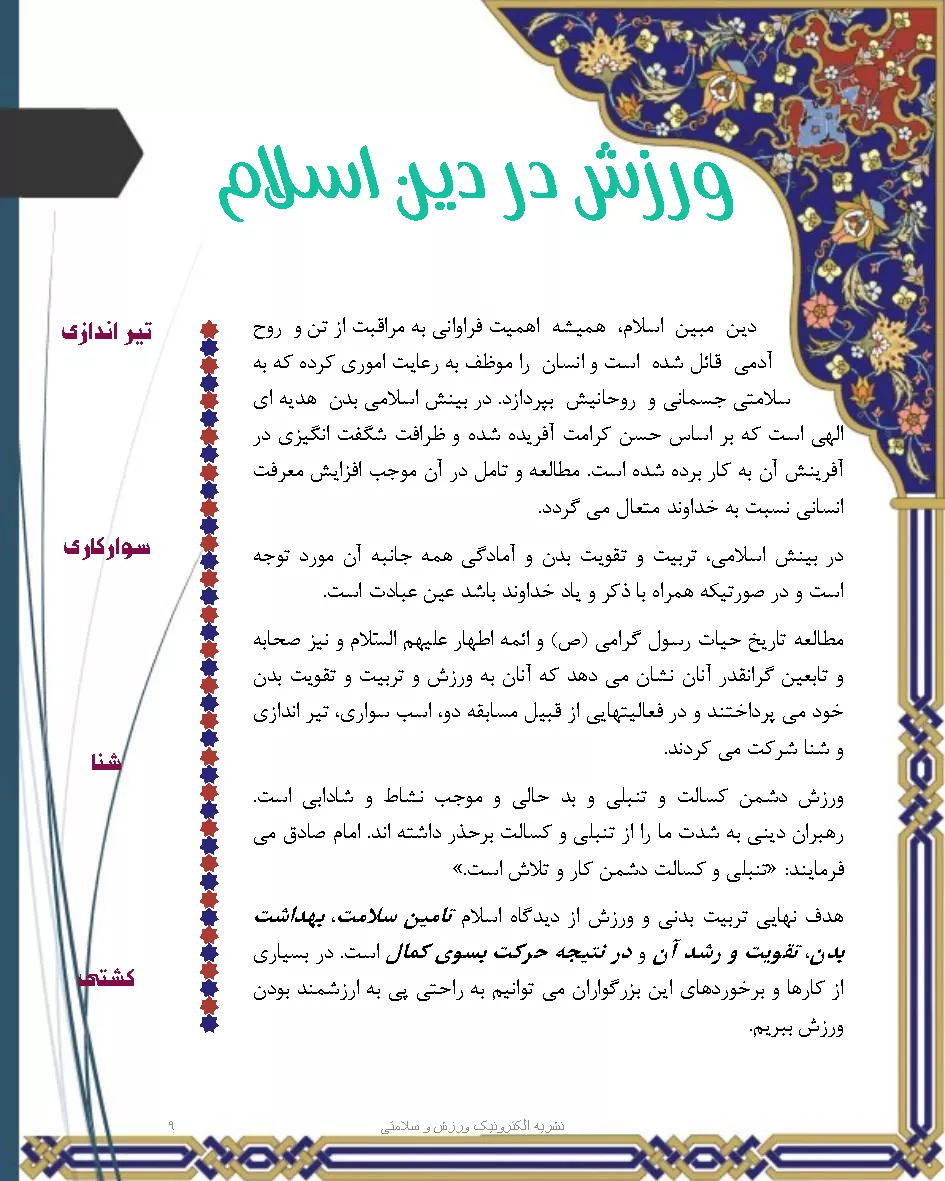 ورزش در دین اسلام
دین مبین اسلام، همیشه اهمیت فراوانی به مراقبت از تن و روح
آدمی قائل شده است و انسان را موظف به رعایت اموری کرده که به
سلامتی جسمانی و روحانیش بپردازد. در بینش اسلامی بدن هدیه ای
الهی است که بر اساس حسن کرامت آفریده شده و ظرافت شگفت انگیزی در
آفرینش آن به کار برده شده است. مطالعه و تامل در آن موجب افزایش معرفت
انسانی نسبت به خداوند متعال می گردد.
در بینش اسلامی، تربیت و تقویت بدن و آمادگی همه جانبه آن مورد توجه
است و در صورتیکه همراه با ذکر و یاد خداوند باشد عین عبادت است.
مطالعه تاریخ حیات رسول گرامی (ص) و ائمه اطهار علیهم السّلام و نیز صحابه
و تابعین گرانقدر آنان نشان می دهد که آنان به ورزش و تربیت و تقویت بدن
خود می پرداختند و در فعالیتهایی از قبیل مسابقه دو، اسب سواری، تیر اندازی
و شنا شرکت می کردند.
ورزش دشمن کسالت و تنبلی و بد حالی و موجب نشاط و شادابی است.
رهبران دینی به شدت ما را از تنبلی و کسالت برحذر داشته اند. امام صادق می
فرمایند: «تنبلی و کسالت دشمن کار و تلاش است.»
هدف نهایی تربیت بدنی و ورزش از دیدگاه اسلام تامین سلامت، بهداشت
بدن، تقویت و رشد آن و در نتیجه حرکت بسوی کمال است. در بسیاری
از کارها و برخوردهای این بزرگواران می توانیم به راحتی پی به ارزشمند بودن
ورزش ببریم.
تیر اندازی
سوارکاری
شنا
کشتی
نشریه الکترونیک ورزش و سلامتی
۹